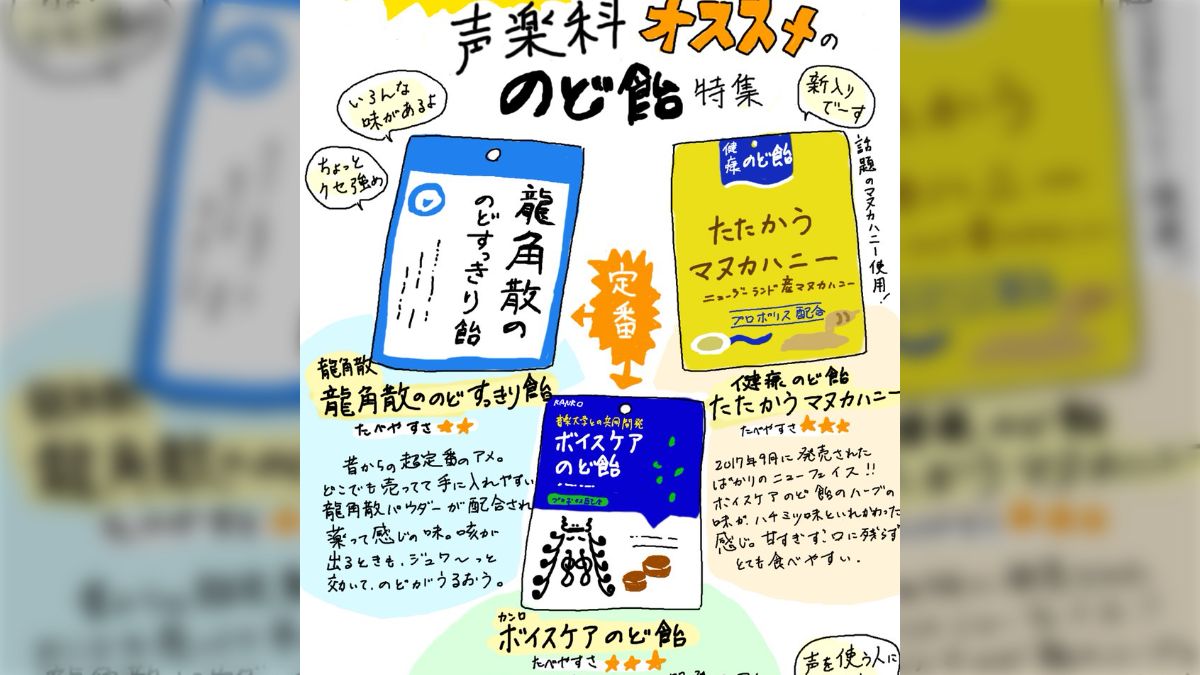 声楽科オススメの
のど飴特集
いろんな
味があるよ
ちょっと
クセ強め
新入り
でーす
話題のマヌカハニー使用!
龍角散の
のどすっきり飴
定番
健康のど飴
たたかう
マヌカハニー
ニュージーランド産マヌカハニー
プロポリス配合
龍角散
龍角散ののどすっきり飴
たべやすさ★★
昔からの超定番のアメ。
どこでも売ってて手に入れやすい
龍角散パウダーが配合され
薬って感じの味。咳が
出るときも、ジュワ〜っと
効いて、のどがうるおう。
KANRO
音楽大学との共同開発
ボイスケア
のど飴
プロポリス配合
健康のど飴
たたかうマヌカハニー
たべやすさ★★★
2017年9月に発売された
ばかりのニューフェイス!!
ボイスケアのど飴のハーブの
味が、ハチミツ味といれかわった
感じ。甘すぎず、口に残らず
とても食べやすい.
カンロ
ボイスケアのど飴
たべやすさ★★★
声を使う人に